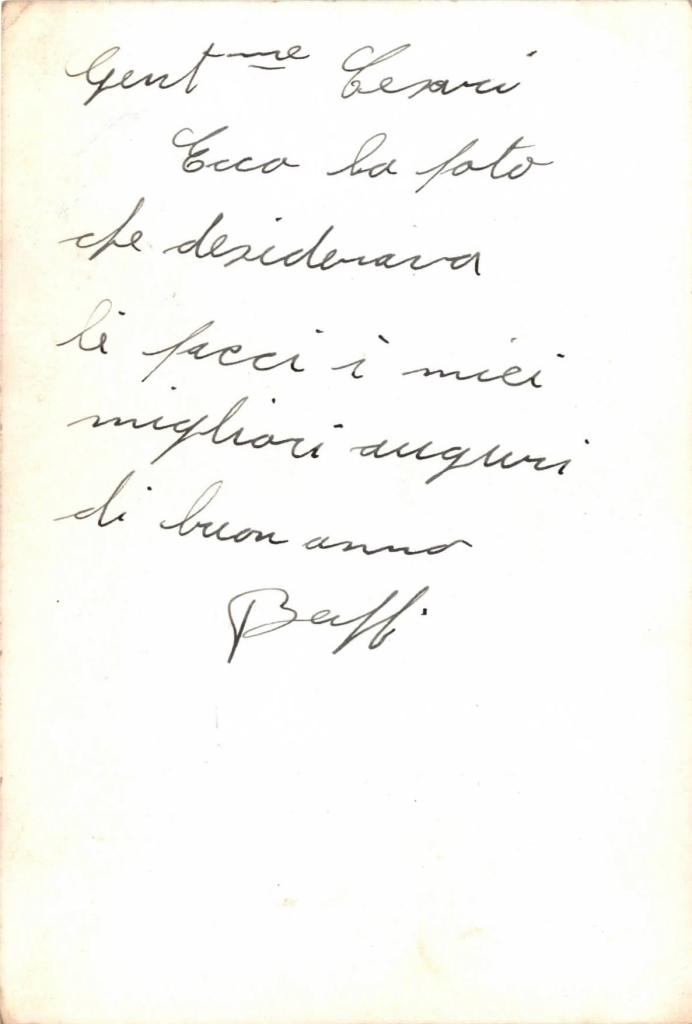 Gent.me Cesari
Ecco la foto
che desiderava
le facci i miei
migliori auguri
di buon anno
Baffi